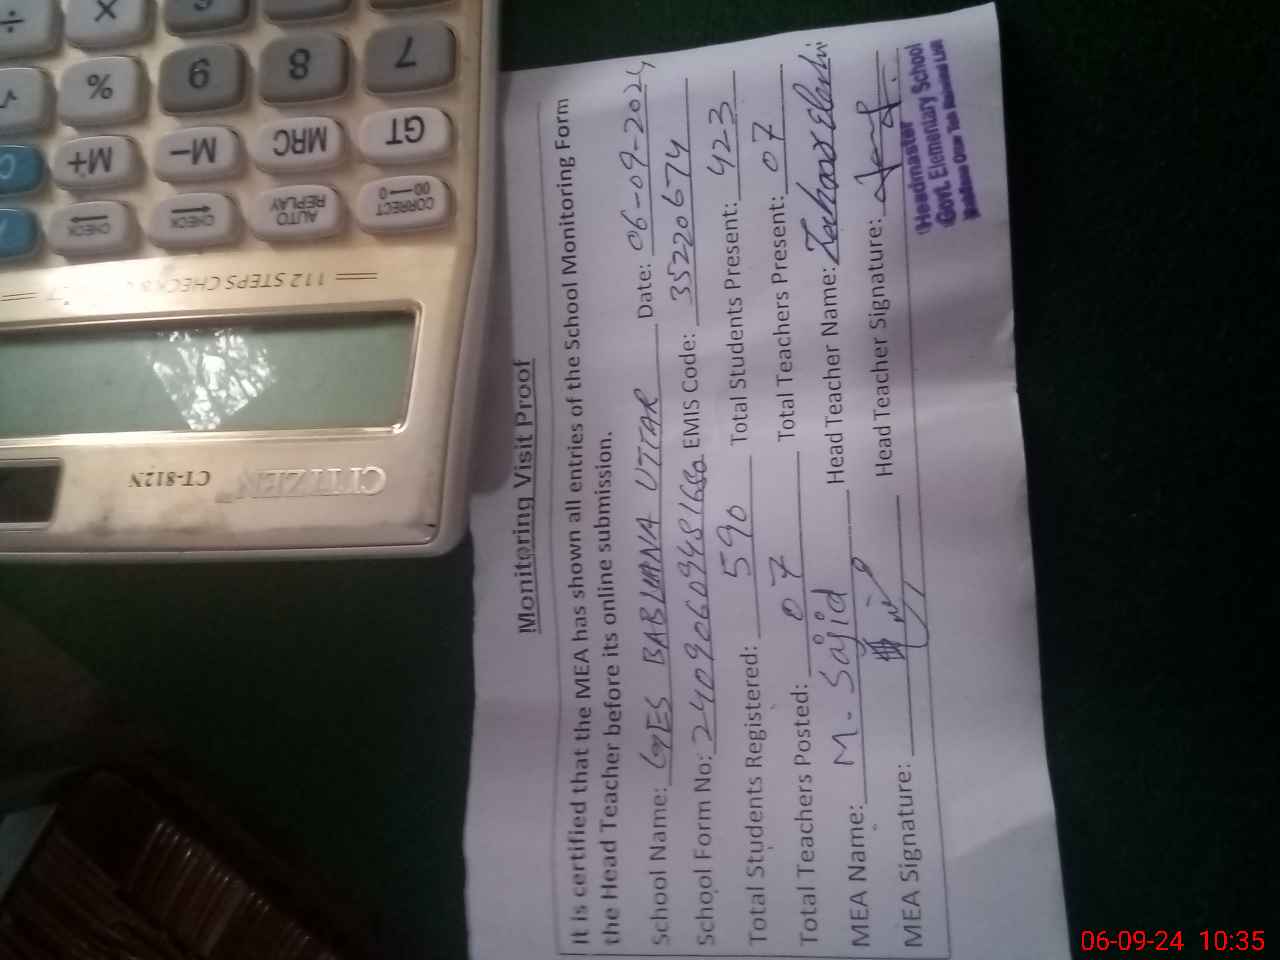 Monitoring Visit Proof
It is certified that the MEA has shown all entries of the School Monitoring Form
the Head Teacher before its online submission.
School Name: GES BABLIANA UTTAR Date: 06-09-2024
School Form No: EMIS Code: 35220674
Total Students Registered: 590 Total Students Present: 423
Total Teachers Posted: 07 Total Teachers Present: 07
MEA Name: M. Sajid Head Teacher Name:
MEA Signature: Head Teacher Signature:
Headmaster
Govt. Elementary School
÷ ×
√ % 9 8 7
M+ M− MRC GT
CHECK CHECK AUTO REPLAY CORRECT 00→0
112 STEPS CHECK &
CITIZEN CT-812N
06-09-24 10:35